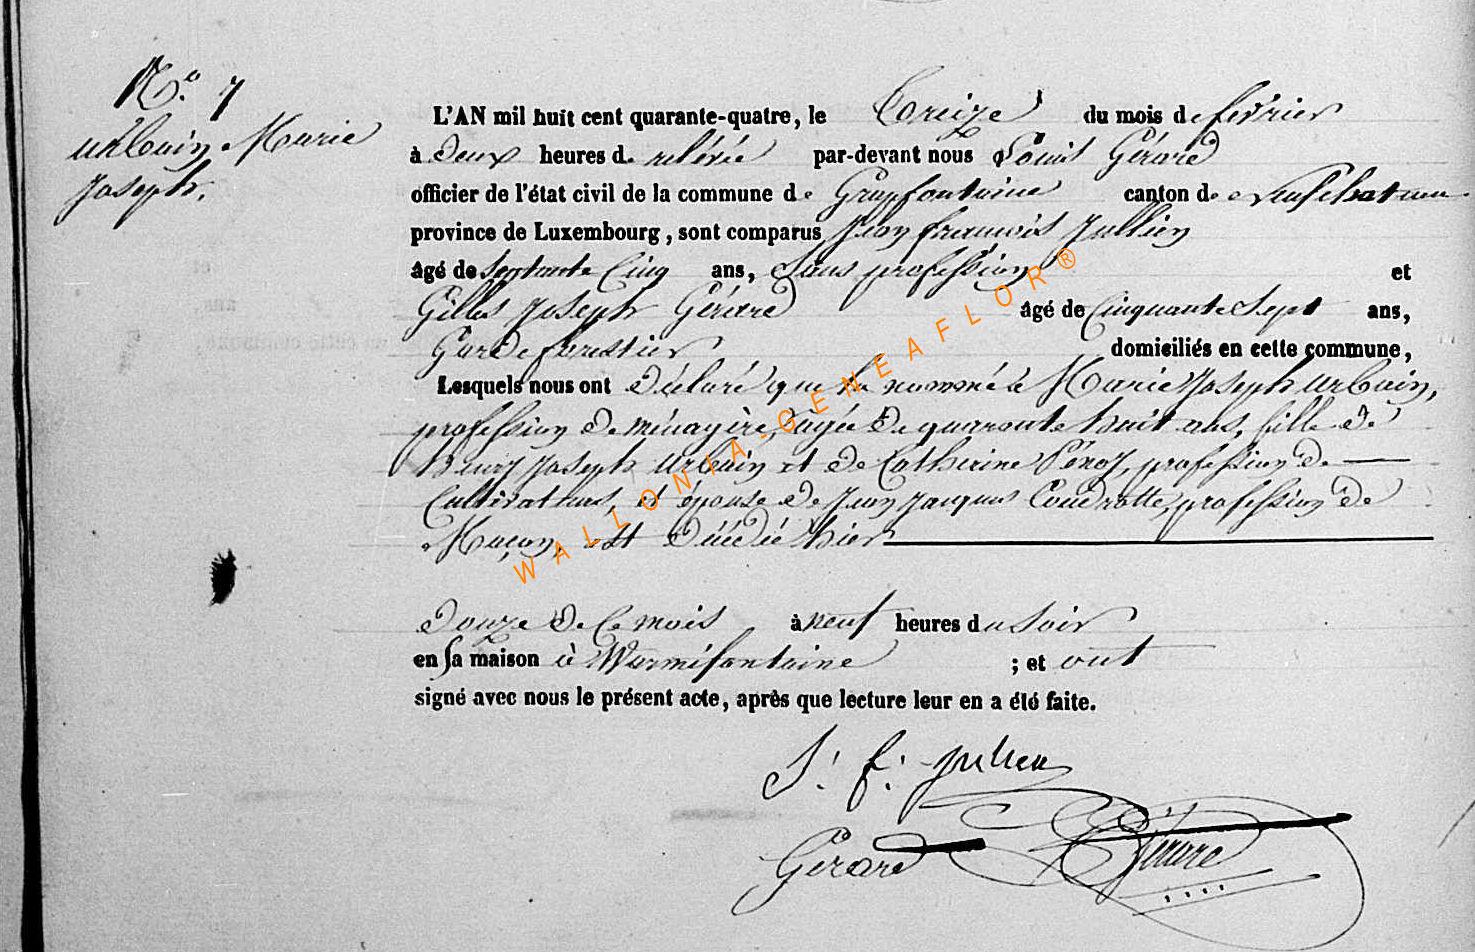 N.° 7
urbain Marie
Joseph.
L'AN mil huit cent quarante-quatre, le treize du mois de février
à deux heures de relévée par-devant nous Louis Gérard
officier de l'état civil de la commune de Grapfontaine canton de Neufchateau
province de Luxembourg, sont comparus Jean françois Jullien
âgé de septante Cinq ans, Sans profession et
Gilles Joseph Gérard âgé de Cinquante Sept ans,
Garde forestier domiciliés en cette commune,
Lesquels nous ont déclaré que la nommée Marie Joseph urbain,
profession de ménagère, agée de quarante huit ans, fille de
henry Joseph urbain et de Catherine profession de
Cultivateurs, et épouse de Jean Jacques profession de
Maçon, est décédée hier
douze de Ce mois à neuf heures du soir
en sa maison à Warmifontaine ; et ont
signé avec nous le présent acte, après que lecture leur en a été faite.
J. f. Julien
Gérard Gérard
WALLONIA-GENEAFLOR®